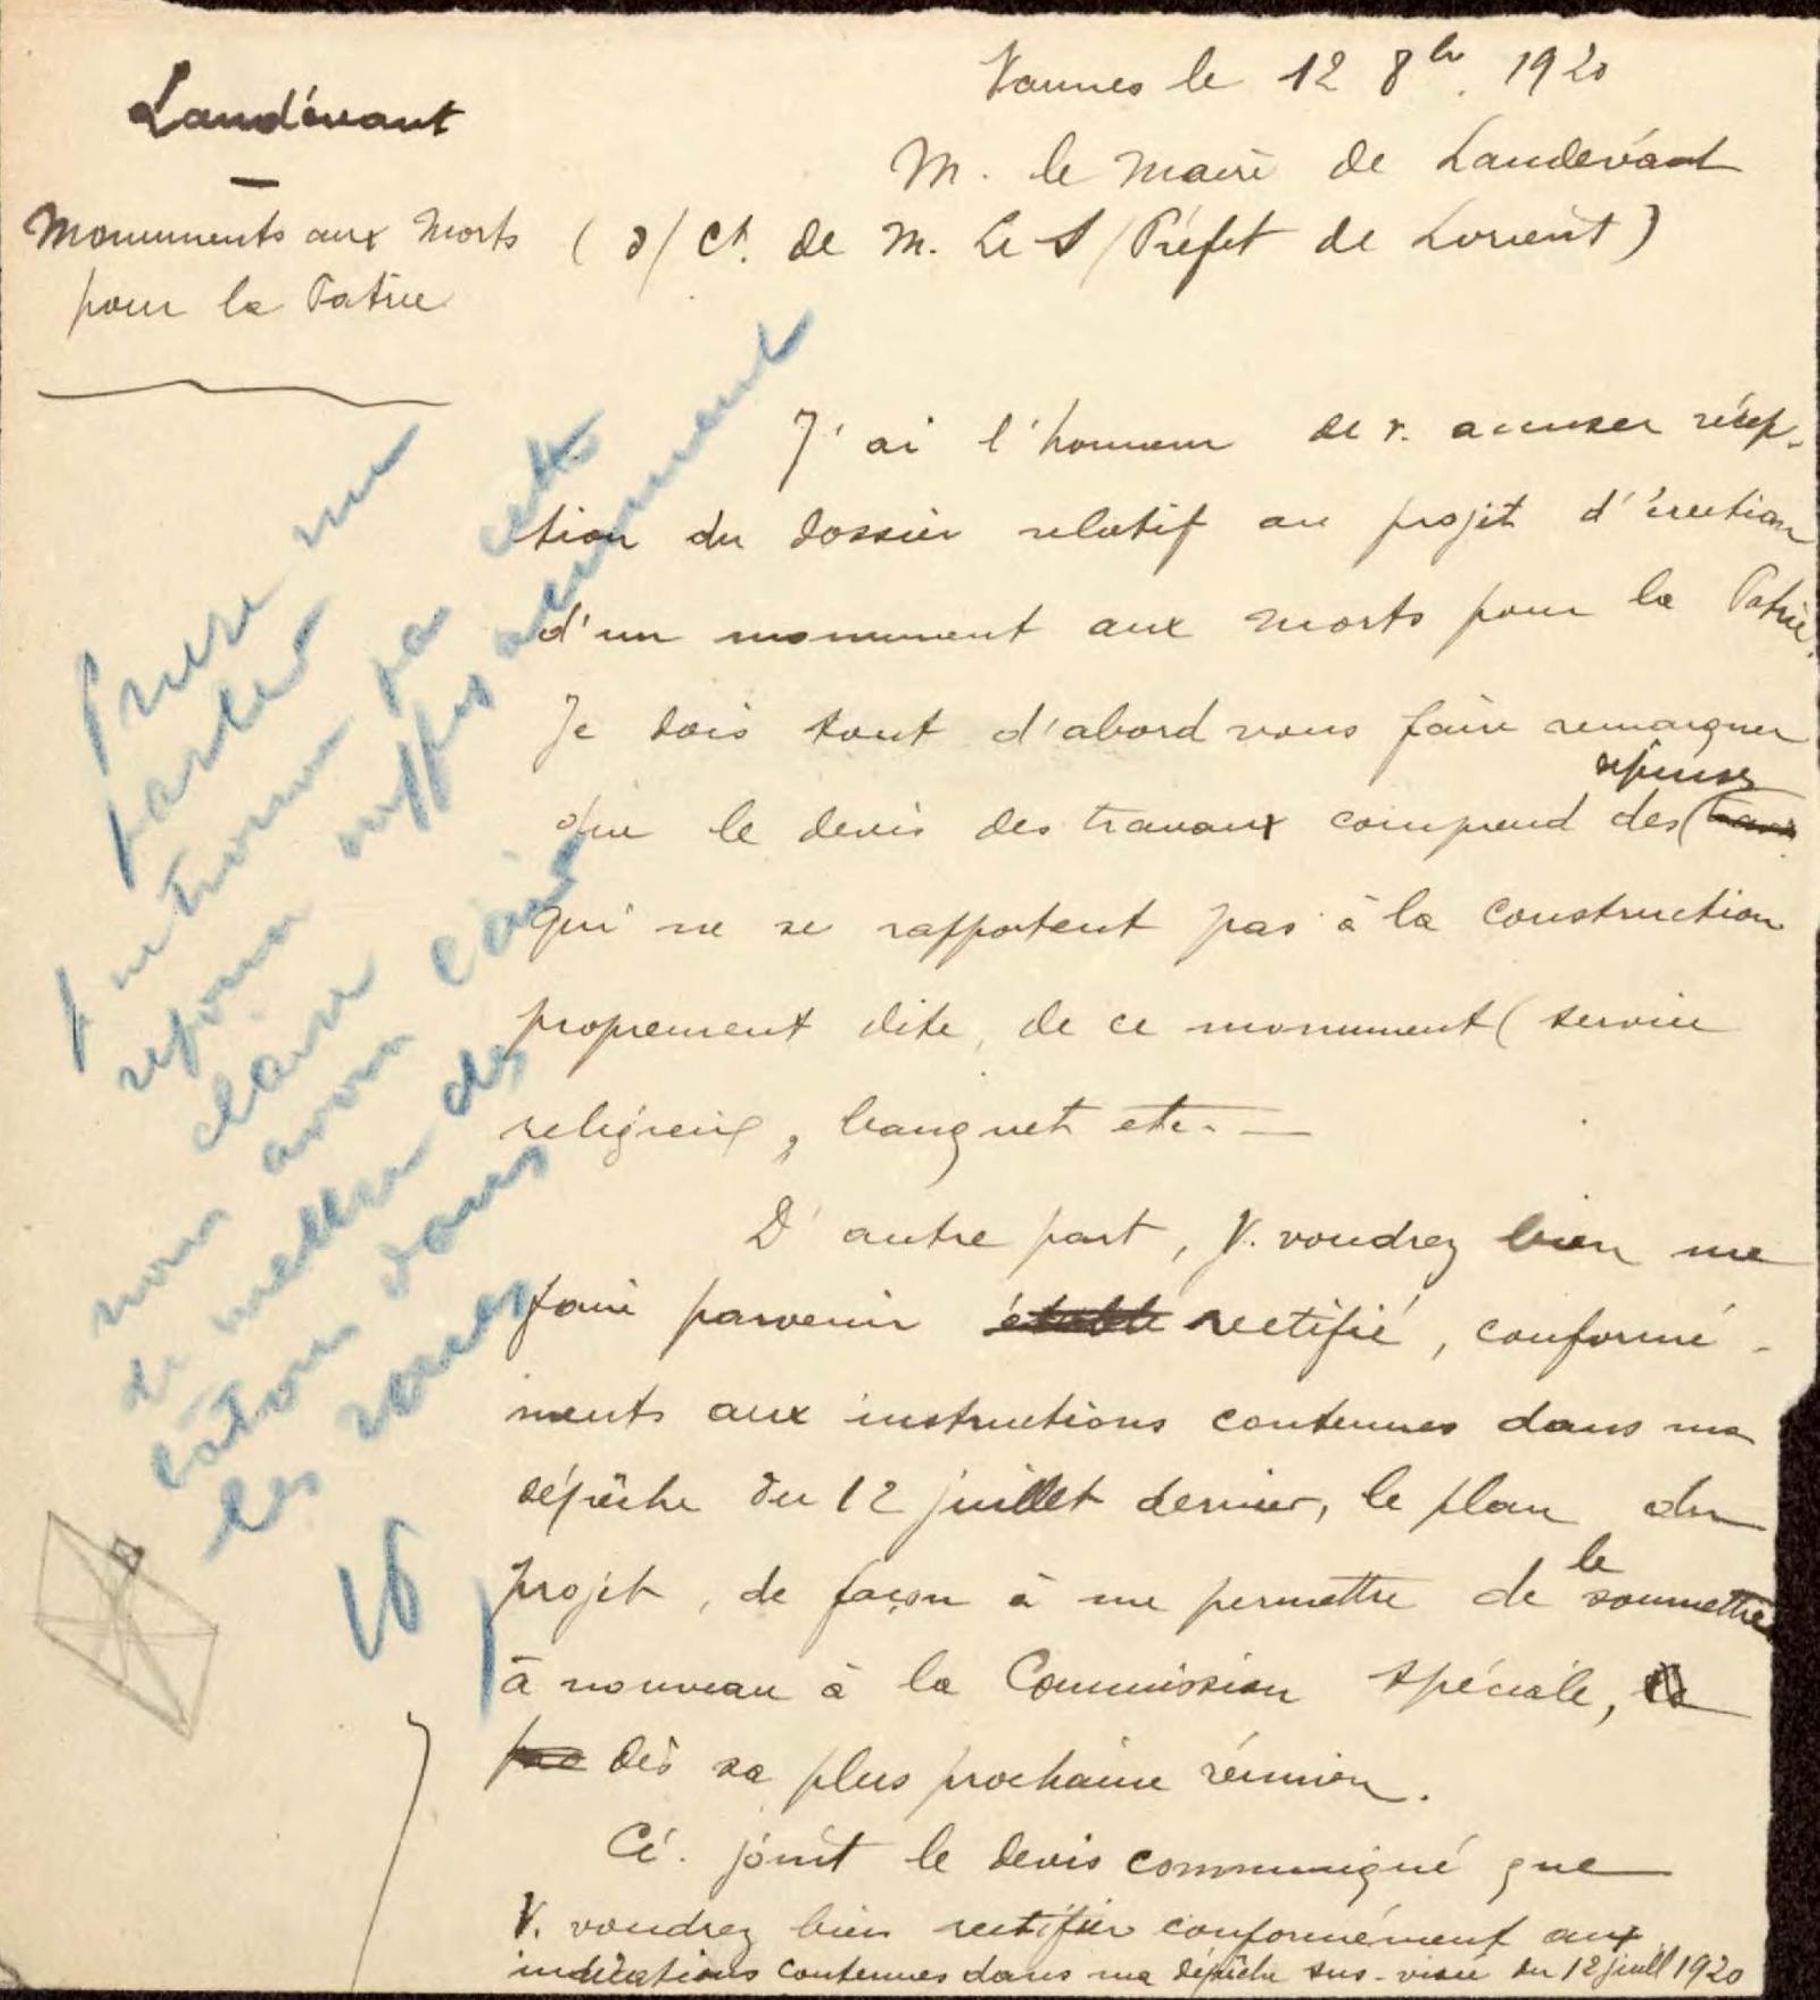 Landévant
Monuments aux Morts
pour la Patrie
Vannes le 12 8bre. 1920
M. le Maire de Landévant
( s/ ct. de M. Le S/Préfet de Lorient )
J'ai l'honneur de v. accuser récep-
tion du dossier relatif au projet d'érection
d'un monument aux morts pour la Patrie.
Je dois tout d'abord vous faire remarquer
que le devis des travaux comprend des dépenses
qui ne se rapportent pas à la construction
proprement dite, de ce monument ( service
religieux, banquet etc. —
D'autre part, V. voudrez bien me
faire parvenir établi rectifié, conformé-
ments aux instructions contenues dans ma
dépêche du 12 juillet dernier, le plan du
projet, de façon à me permettre de le soumettre
à nouveau à la Commission spéciale,
dès sa plus prochaine réunion.
Ci. joint le devis communiqué que
V. voudrez bien rectifier conformément aux
indications contenues dans ma dépêche sus-visée du 12 juill 1920
Prière me
parler
je ne trouve pas cette
réponse suffisamment
claire
nous avons l'air
de mettre des
bâtons dans
les roues